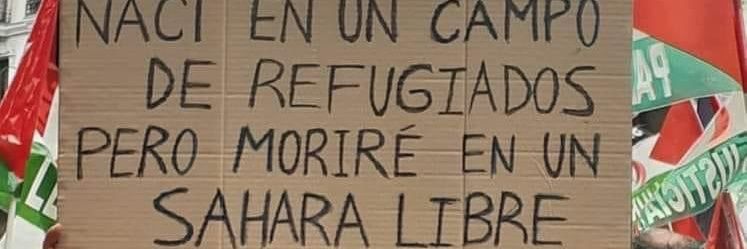 NACÍ EN UN CAMPO
DE REFUGIADOS
PERO MORIRÉ EN UN
SAHARA LIBRE